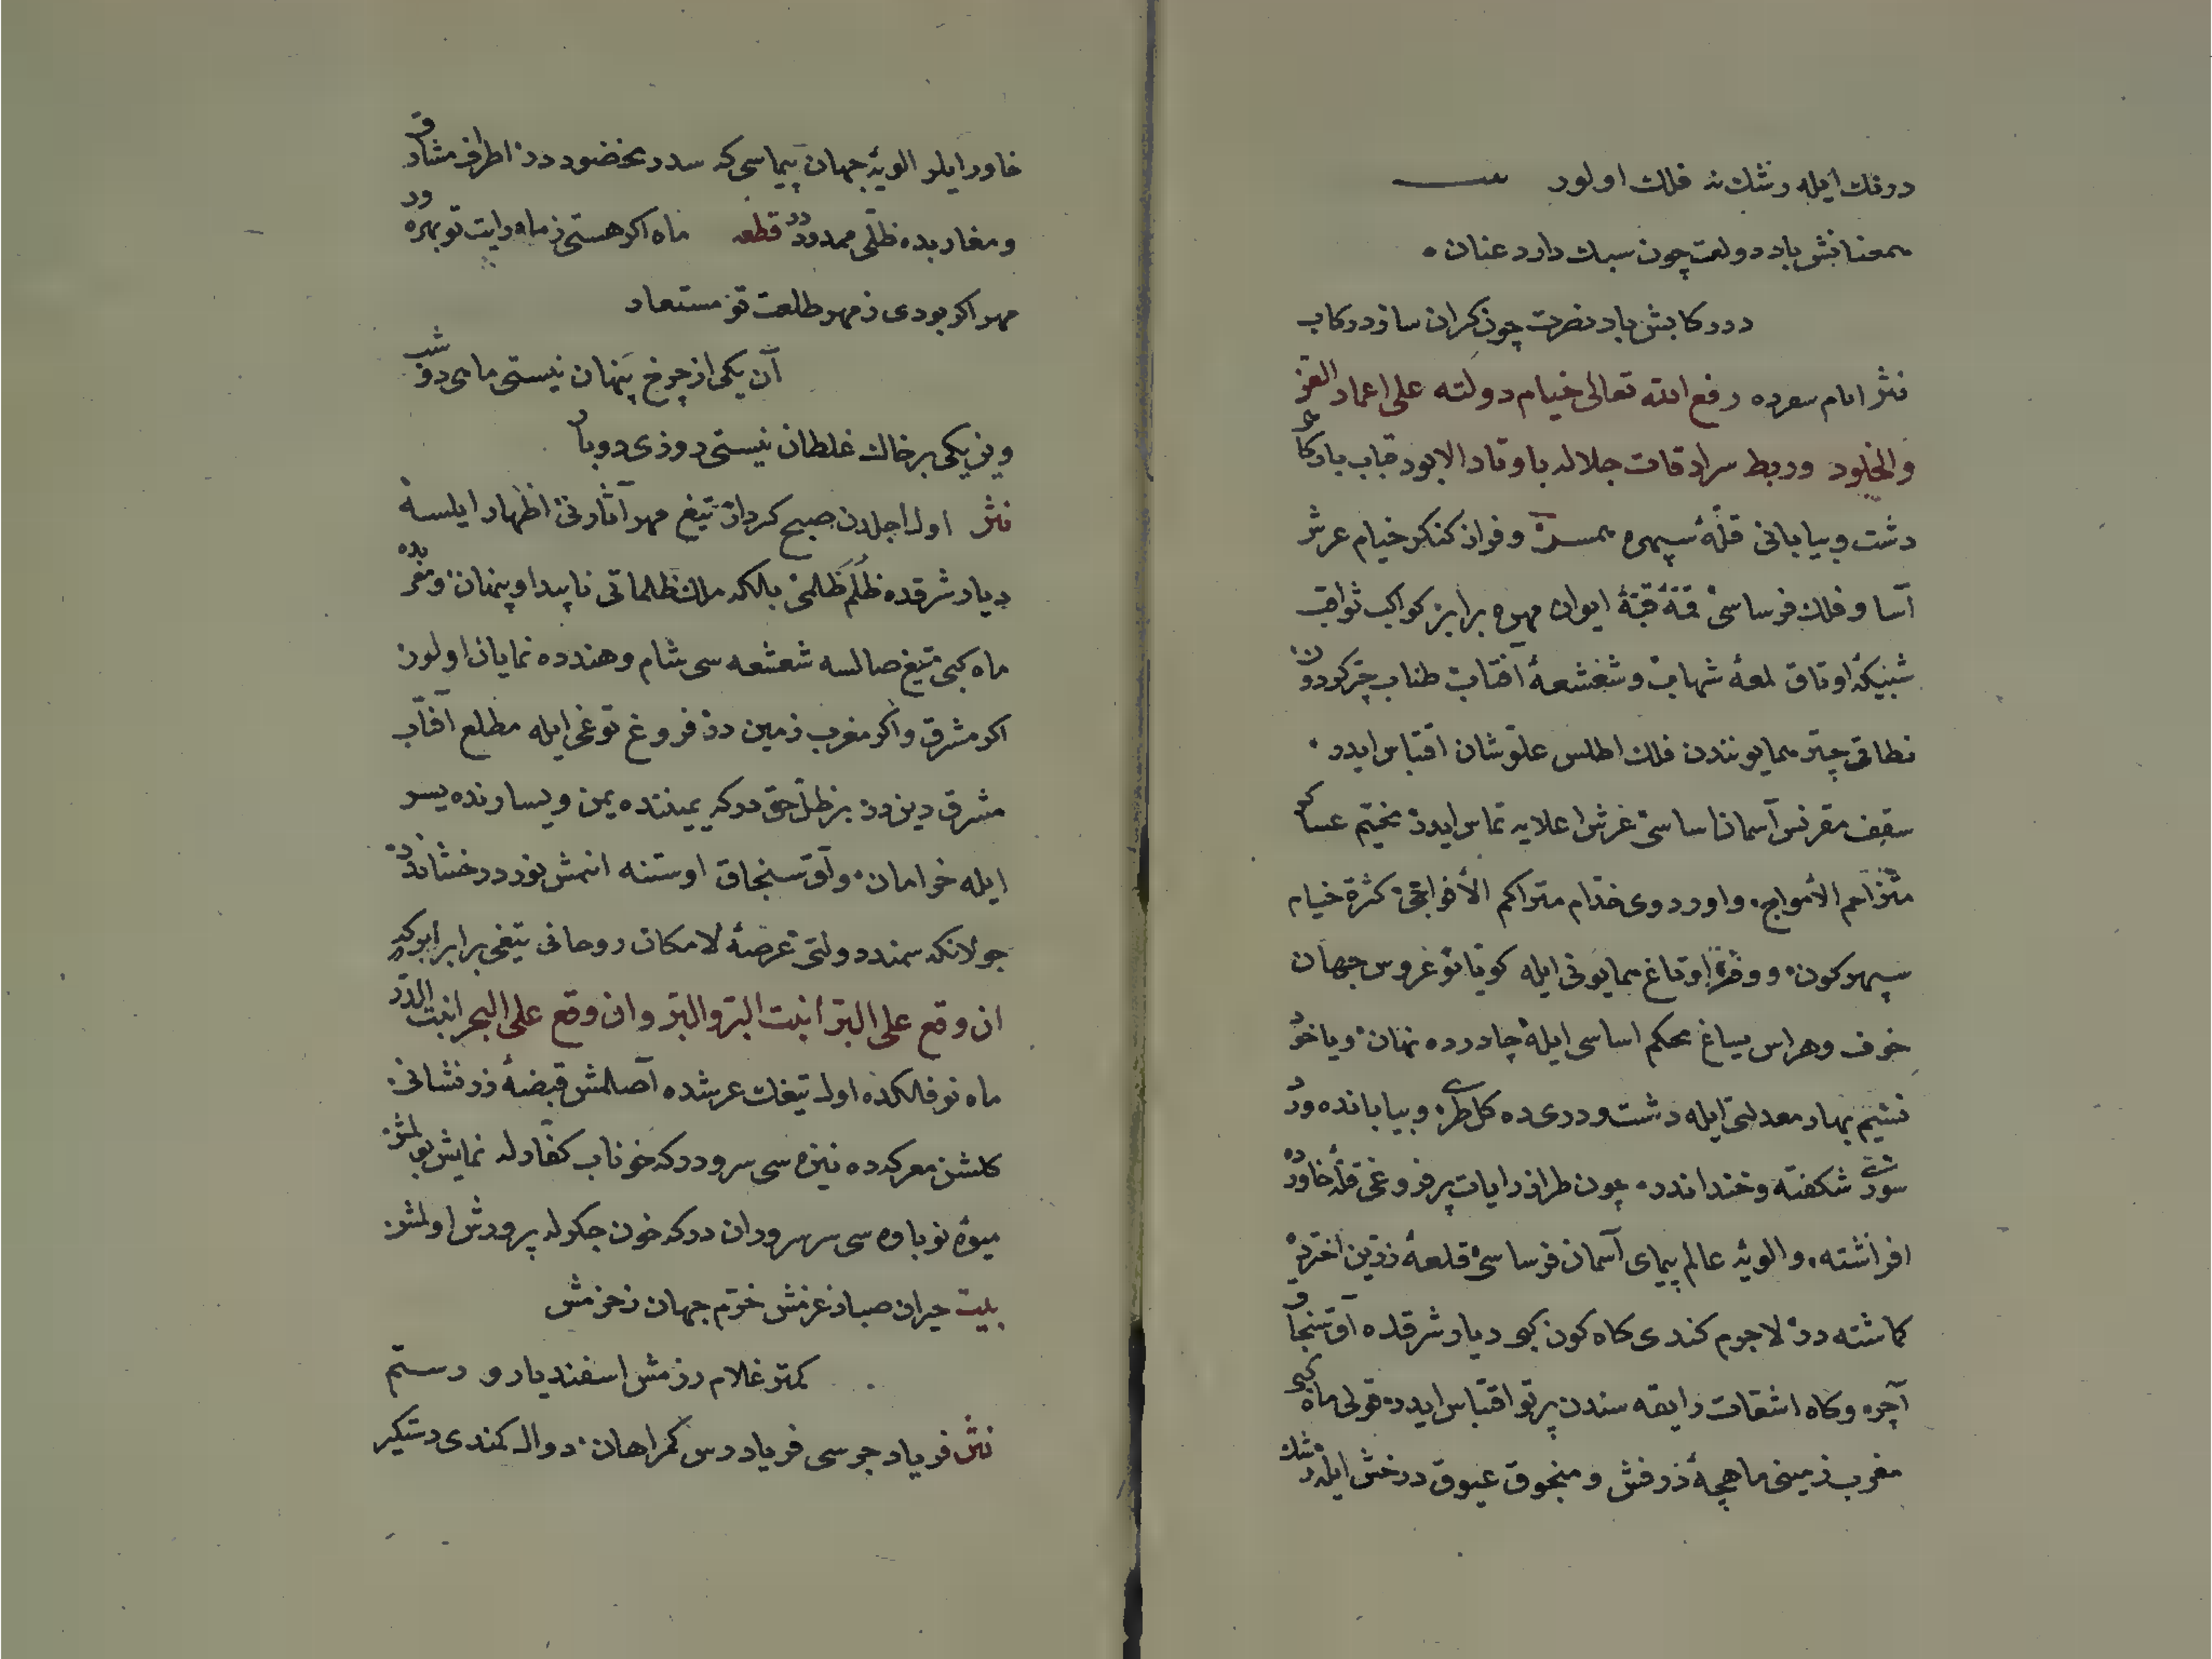 دونك ایله رشك نه فلك اولور
همعنانش باد دولت چون سبك دارد عنان
در ركابش باد نصرت چون كران سازد ركاب
نثر رفع الله تعالى خیام دولته على اعماد العز
والخلود وربط سرادقات جلاله باوتاد الابود قباب باركا
دشت وبیابانی قلّهٔ سپهره وفراز كنكر خیام عرش
آسا وفلك فرساسی قبّهٔ ایوان مهره برابر كواكب ثواقب
اوتاق لمعهٔ شهاب وشعشعهٔ آفتاب طناب
نطاقی چتر همایونندن فلك اطلس علوّشان اقتباس ایدر
سقف مقرنس آسمان اساسی عرش اعلایه تماس ایدر مخیّم عساكر
متزاحم الأمواج واوردوی خدّام متراكم الأفواجی كثرة خیام
سپهركون ووفرة اوتاغ همایونی ایله كویا نوعروس جهان
خوف وهراس یساغ محكم اساسی ایله چادرده نهان ویاخود
نسیم بهار معدلتی ایله دشت ودری ده كل طری وبیابانده ورد
سوری شكفته وخنداندر چون طراز رایات پرفروغی قلّهٔ خاورده
افراشته والویهٔ عالم پیمای آسمان فرساسی قلعهٔ زرّین اختره
كاشته در لاجرم كندی كاه كون كبی دیار شرقده آق سنجاق
آچره وكاه اشقات رایقه سندن پرتو اقتباس ایدر قولی ماه كبی
مغرب زمینی ماهچهٔ زرفش ومنجوق عیوق درخش ایله رشك
خاور ایلر الویهٔ جهان پیماسی كه اطراف مشارق
ومغاربده ظلّی ممدوددر قطعه ماه اكر هستی ز ماه رایت تو بهره ور
مهر اكر بودی ز مهر طلعت تو مستعار
آن یكی از چرخ پنهان نیستی ماهی دو شب
وین یكی بر خاك غلطان نیستی روزی دو بار
نثر اول اجلدن صبح كردار تیغ مهر آثارنی اظهار ایلسه
دیار شرقده ظلم ظلمی بالكه ملك ظلماتی ناپیدا وپنهان ومغربده
ماه كبی تیغ صالسه شعشعه سی شام وهندده نمایان اولور
اكر مشرق واكر مغرب زمین در فروغ توغی ایله مطلع آفتاب
مشرق دین در بر ظلّ حق در كه یمیننده یمن ویسارنده یسر
ایله خرامان وآق سنجاق اوستنه انمش نوردر رخشاندر
جولانكه سمند دولتی عرصهٔ لامكان روحانی تیغی برابر ابر كدر
ان وقع على البرّ انبت البرّ والبرّ وان وقع على البحر انبت الدرّ
ماه نو فلكده اول تیغك عرشده آصلمش قبضهٔ زرنشانی
كلشن معركه ده نیزه سی سرودر كه خوناب كفّارله نمایش بولمش
میوهٔ نوباوه سی سرسروران در كه خون جكرله پرورش اولمش
بیت حیران صبا ز عزمش خرّم جهان ز حزمش
كمتر غلام رزمش اسفندیار و رستم
نثر فریاد جرسی فریادرس كمراهان دوال كمندی دستكیر